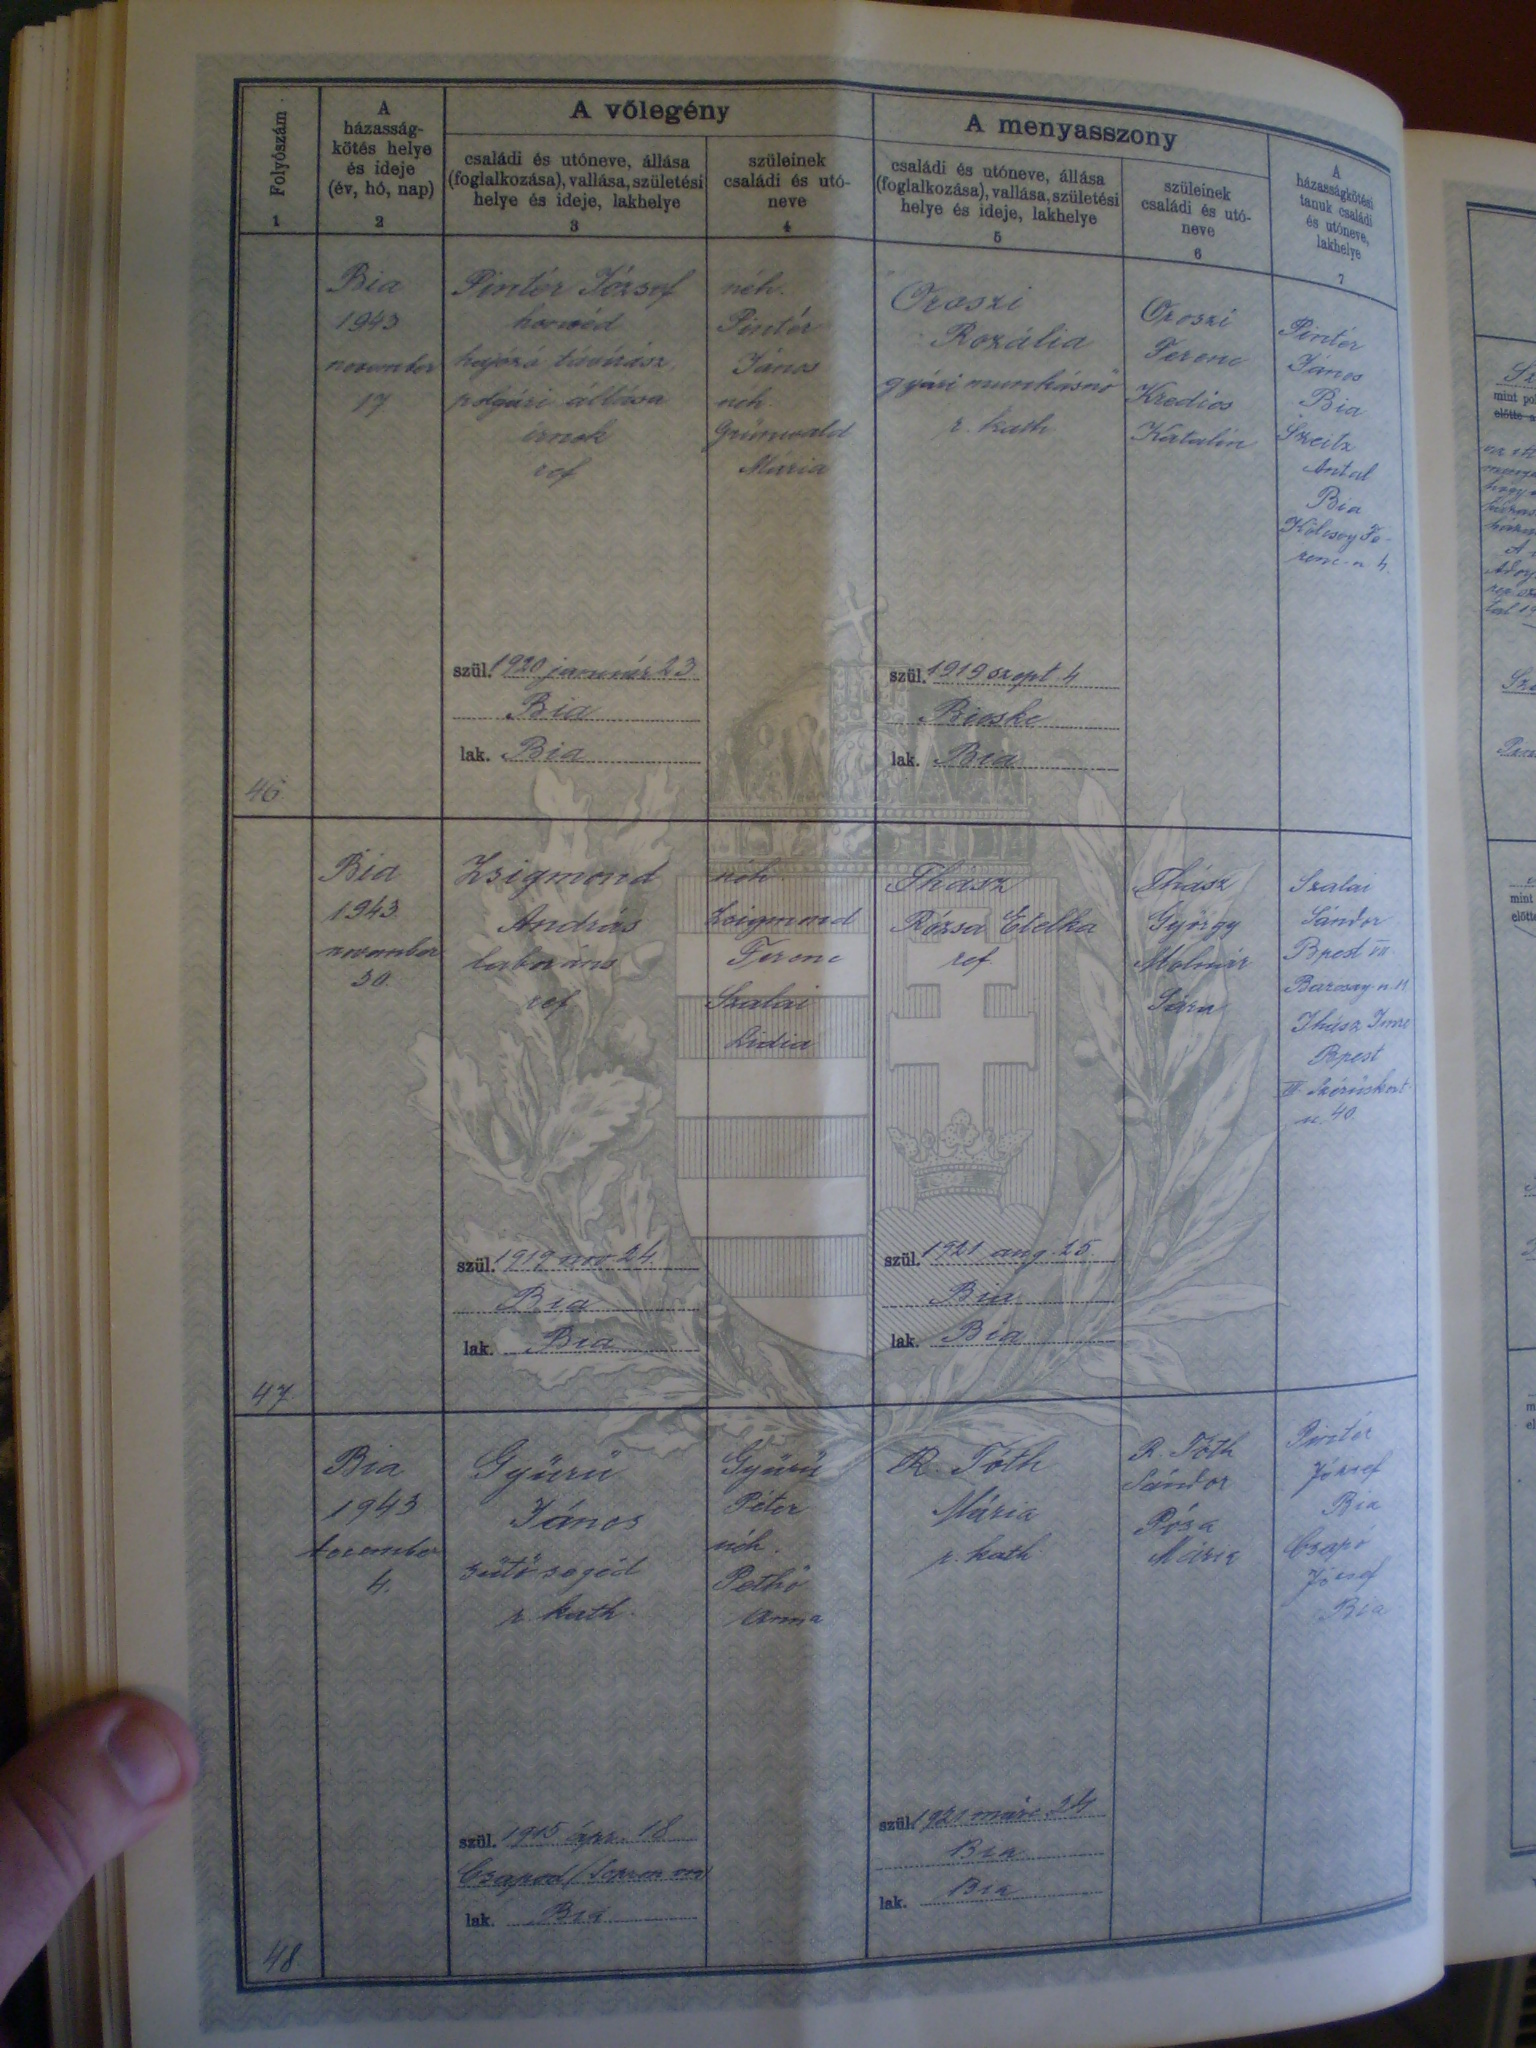 A vőlegény
A menyasszony
Folyószám
A
házasság-
kötés helye
és ideje
(év, hó, nap)
családi és utóneve, állása
(foglalkozása), vallása, születési
helye és ideje, lakhelye
szüleinek
családi és utó-
neve
családi és utóneve, állása
(foglalkozása), vallása, születési
helye és ideje, lakhelye
szüleinek
családi és utó-
neve
A
házasságkötési
tanuk családi
és utóneve,
lakhelye
1
2
3
4
5
6
7
46
Bia
1943
november
17
Pintér József
honvéd
hajózó távirász
polgári állása
írnok
ref
szül. 1920 január 23
Bia
lak. Bia
néh.
Pintér
János
néh.
Grünwald
Mária
Oroszi
Rozália
gyári munkásnő
r. kath
szül. 1919 szept. 4
Bicske
lak. Bia
Oroszi
Ferenc
Katalin
Pintér
János
Bia
Szeitz
Antal
Bia
Kölcsey Fe-
renc u 4.
47
Bia
1943
november
30.
Zsigmond
András
laboráns
ref
szül. 1919 nov 24
Bia
lak. Bia
néh
Zsigmond
Ferenc
Szalai
Lidia
Ihász
Rózsa Etelka
ref.
szül. 1921 aug. 25.
Bia
lak. Bia
Ihász
György
Molnár
Sára
Szalai
Sándor
Bpest VII.
Ihász Imre
Bpest
Szérűskert
u. 40.
48.
Bia
1943
december
4.
Gyűrű
János
sütő segéd
r. kath.
szül. 1915 ápr. 18
Csapod (Sopron vm)
lak. Bia
Gyűrű
Péter
néh.
Pethő
Anna
R. Tóth
Mária
r. kath
szül. 1921 márc 24
Bia
lak. Bia
R. Tóth
Sándor
Póza
Mária
Pintér
József
Bia
Csapó
József
Bia